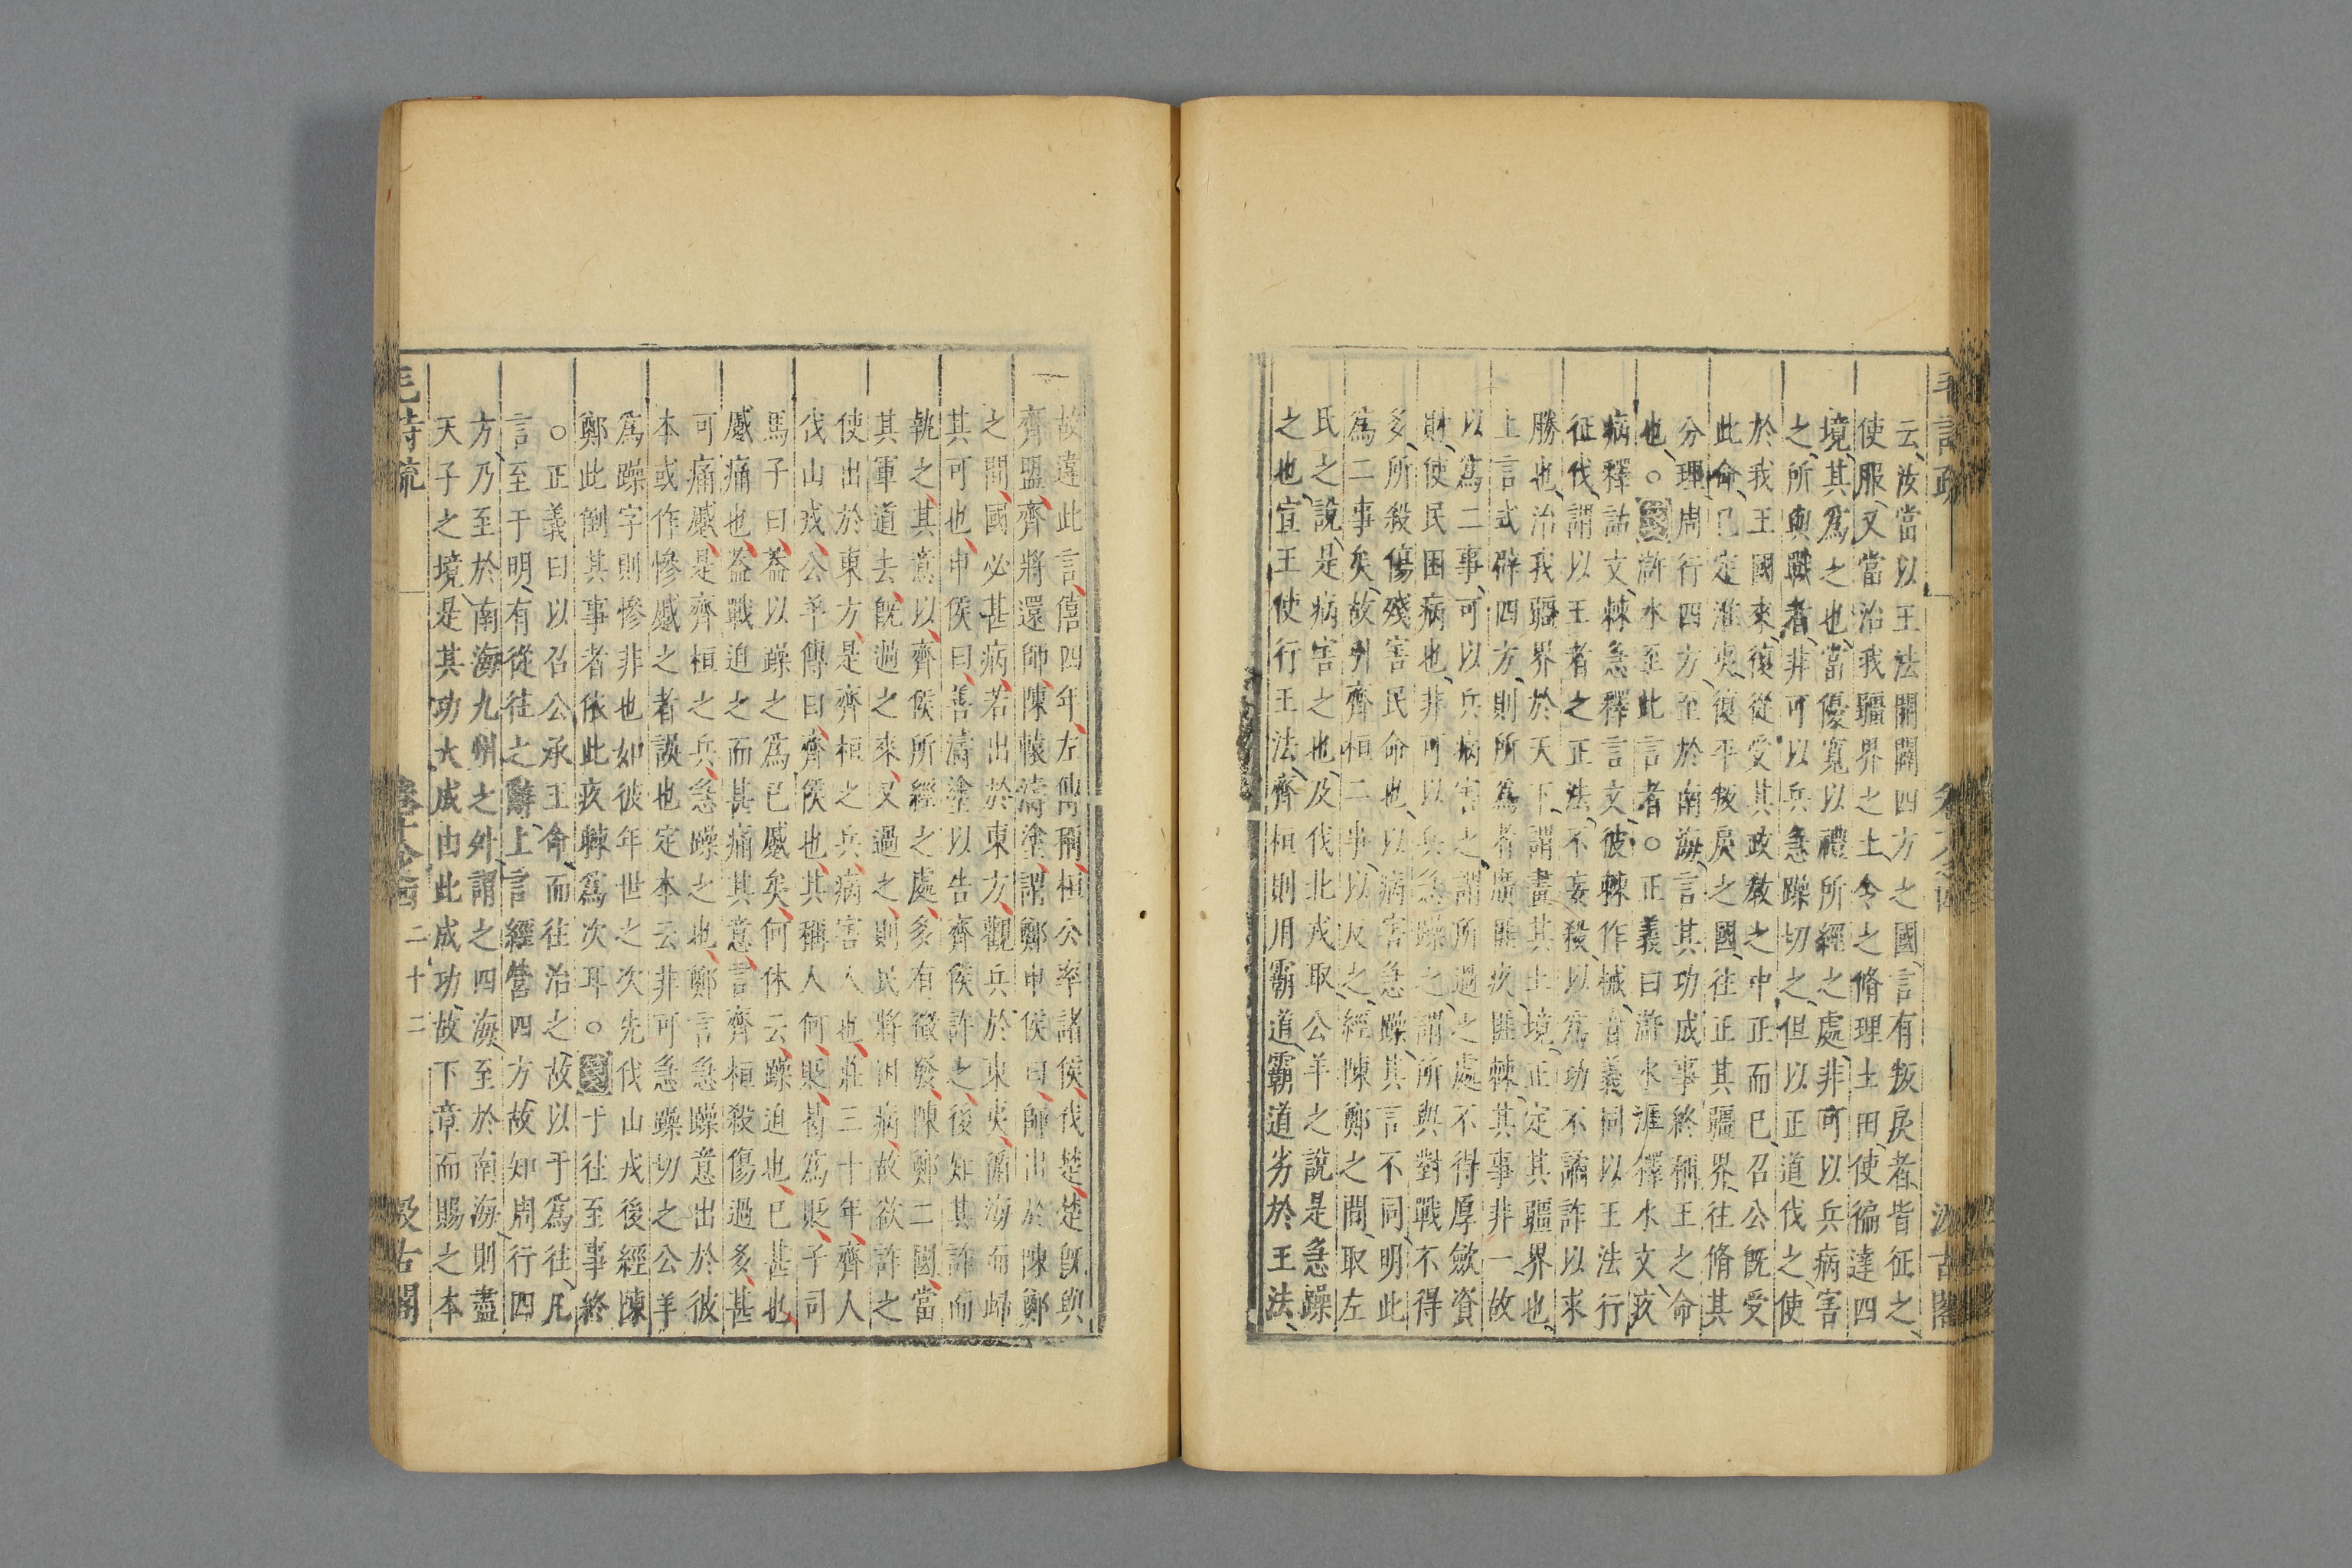 云汝當以王法開闢四方之國言有叛戾者皆征之
使服又當治我疆界之土令之脩理土田使徧達四
境其爲之也當優寬以禮所經之處非可以兵病害
之所與戰者非可以兵急躁切之但以正道伐之使
於我王國來復從受其政敎之中正而已召公旣受
此命已定淮夷復平叛戾之國往正其疆界往脩其
分理周行四方至於南海言其功成事終稱王之命
也○滸水至此言者○正義曰滸水涯釋水文疚
病釋詁文棘急釋言文彼棘作悈音義同以王法行
征伐謂以王者之正法不妄殺以爲功不譎詐以求
勝也治我疆界於天下謂畫其土境正定其疆界也
上言式辟四方則所爲者廣匪疚匪棘其事非一故
以爲二事可以兵病害之謂所過之處不得厚斂資
財使民困病也非可以兵急躁之謂所與對戰不得
多所殺傷殘害民命也以病害急躁其言不同明此
爲二事矣故引齊桓二事以反之經陳鄭之間取左
氏之說是病害之也及伐北戎取公羊之說是急躁
之也宣王使行王法齊桓則用霸道霸道劣於王法
故違此言僖四年左傳稱桓公率諸侯伐楚楚旣與
齊盟齊將還師陳轅濤塗謂鄭申侯曰師出於陳鄭
之間國必甚病若出於東方觀兵於東夷循海而歸
其可也申侯曰善濤塗以告齊侯許之後知其詐而
執之其意以齊侯所經之處多有徵發陳鄭二國當
其軍道去旣過之來又過之則民將困病故欲詐之
使出於東方是齊桓之兵病害人也莊三十年齊人
伐山戎公羊傳曰齊侯也其稱人何貶曷爲貶子司
馬子曰蓋以躁之爲已慼矣何休云躁迫也已甚也
慼痛也蓋戰迫之而甚痛其意言齊桓殺傷過多甚
可痛慼是齊桓之兵急躁之也鄭言急躁意出於彼
本或作慘慼之者誤也定本云非可急躁切之公羊
爲躁字則慘非也如彼年世之次先伐山戎後經陳
鄭此倒其事者依此疚棘爲次耳○于往至事終
○正義曰以召公承王命而往治之故以于爲往凡
言至于明有從往之辭上言經營四方故知周行四
方乃至於南海九州之外謂之四海至於南海則盡
天子之境是其功大成由此成功故下章而賜之本
毛詩疏 二十二 汲古閣